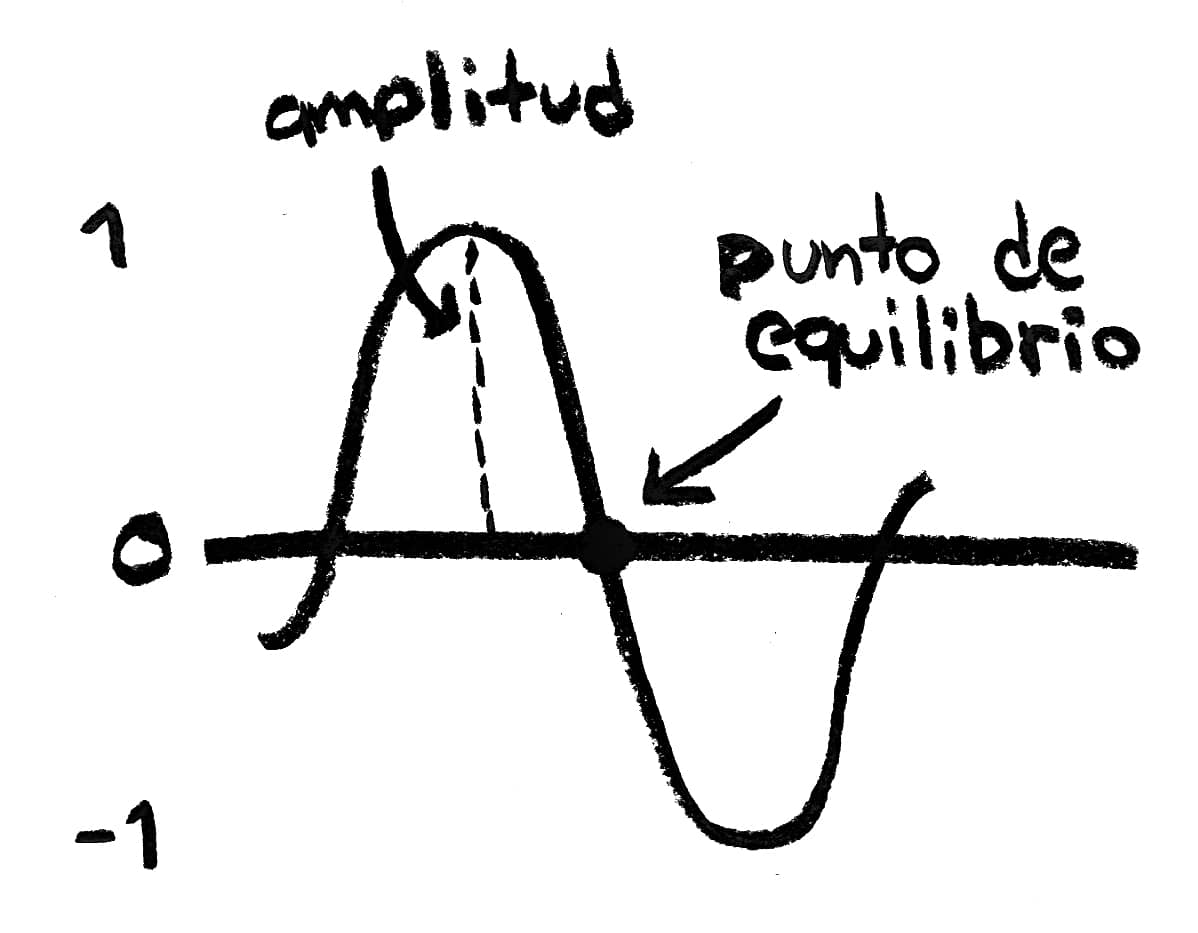 amplitud
1
punto de
equilibrio
0
-1